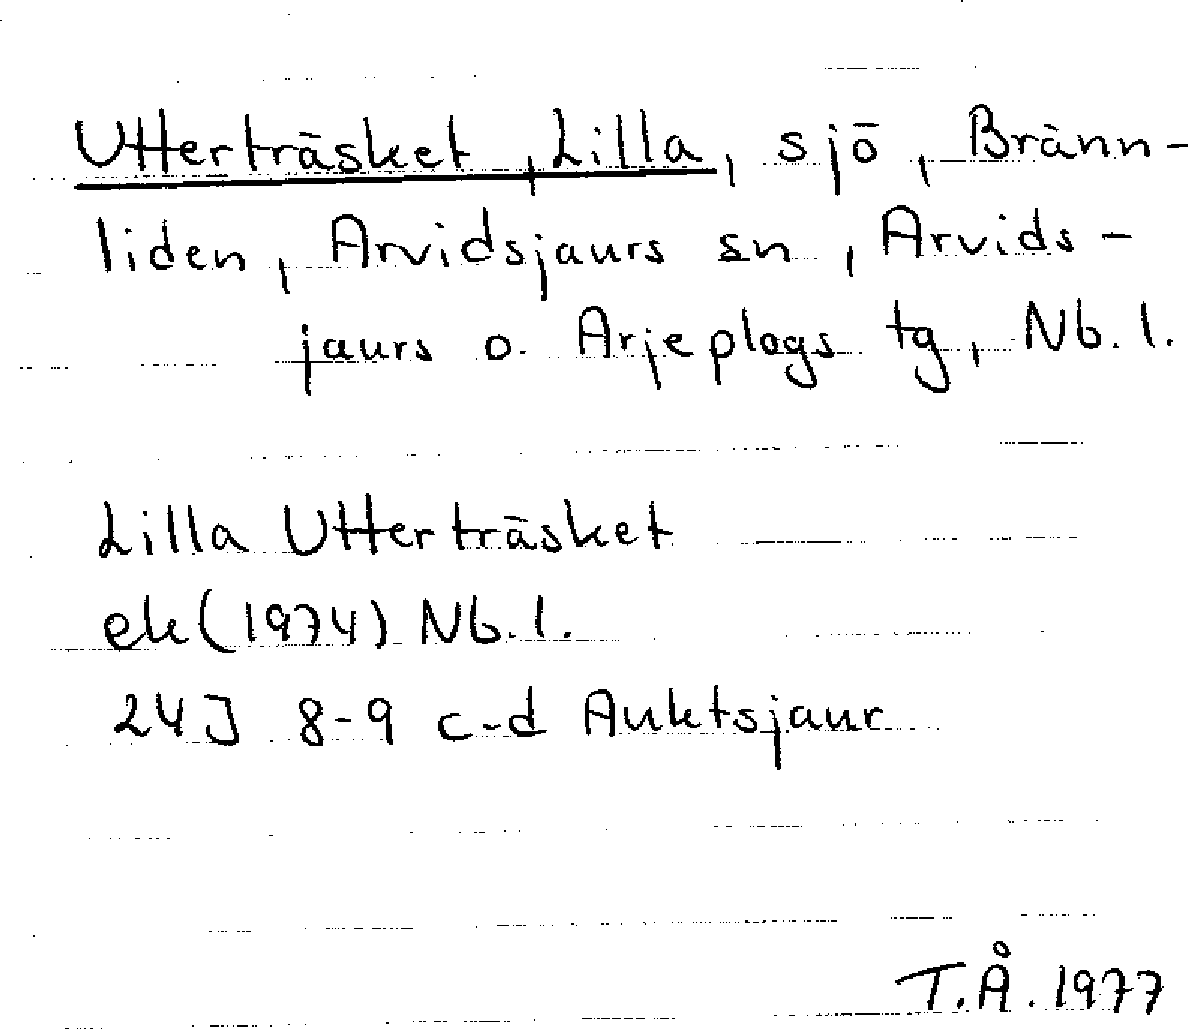 Utterträsket, Lilla, sjö, Bränn-
liden, Arvidsjaurs sn, Arvids-
jaurs o. Arjeplogs tg, Nb. l.
Lilla Utterträsket
ek (1974) Nb. l.
24J 8-9 c-d Auktsjaur
T.Å. 1977